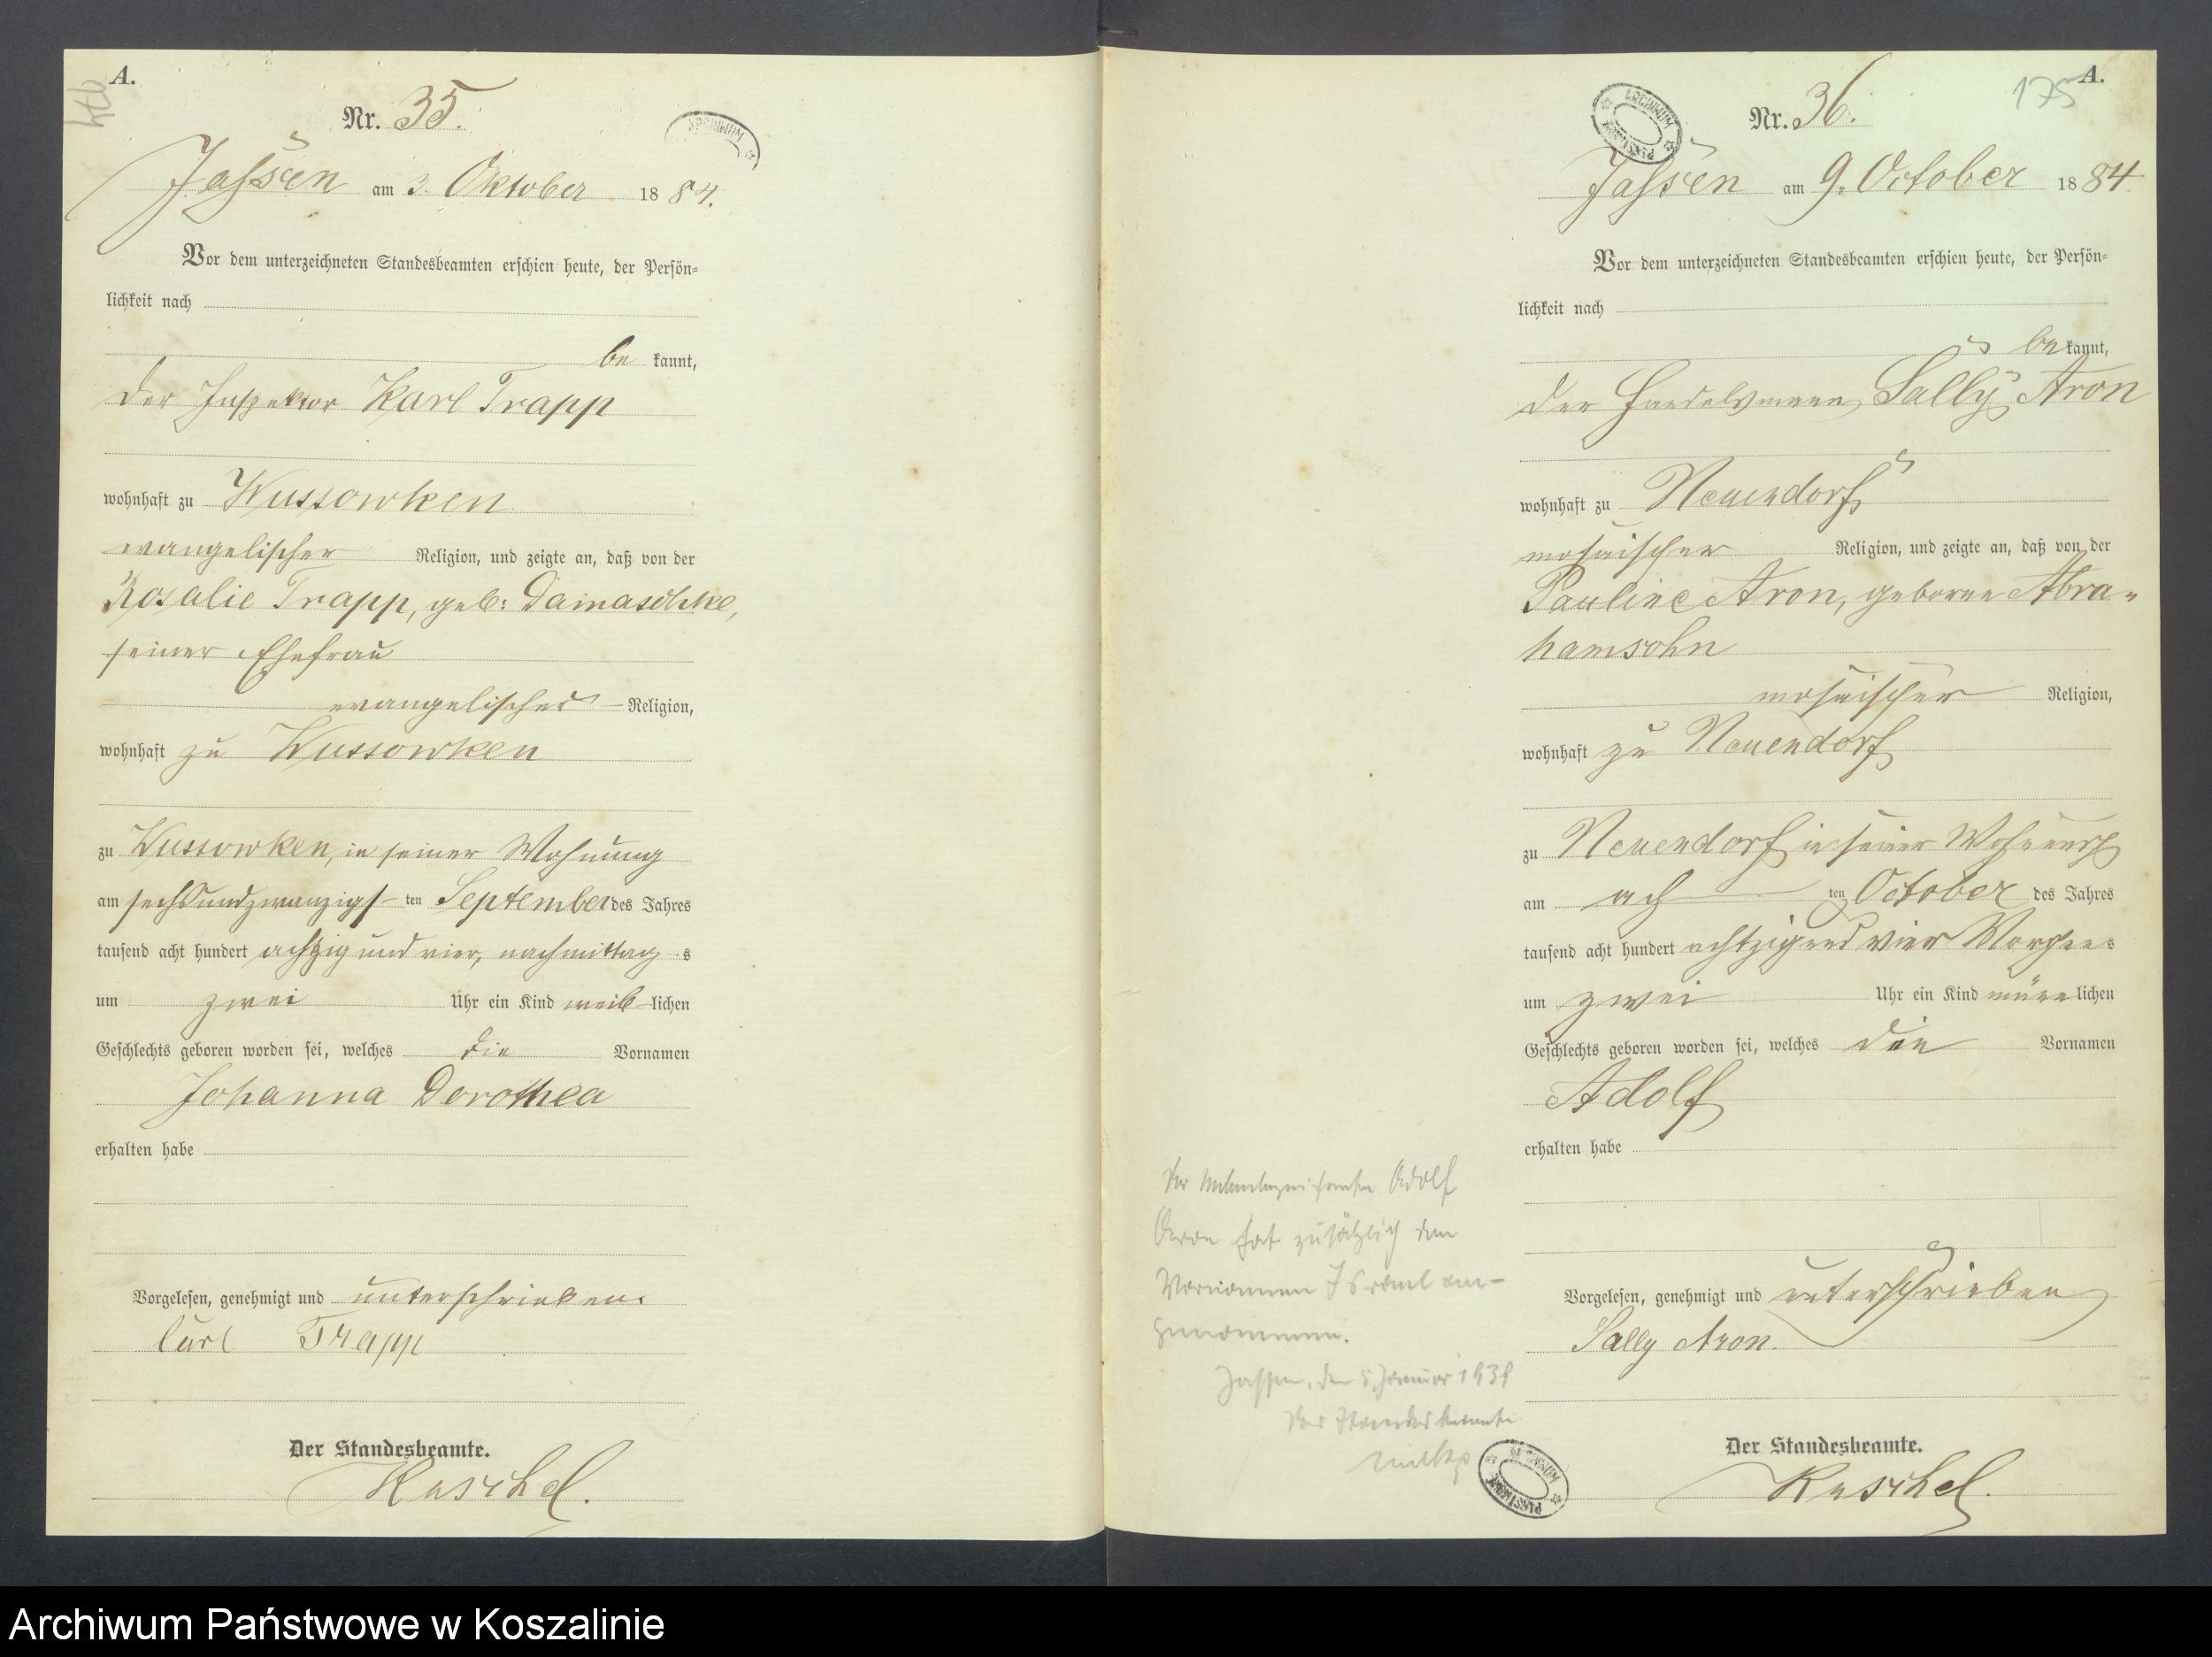 A.
Nr. 35.
Jassen am 3. Oktober 1884.
Vor dem unterzeichneten Standesbeamten erschien heute, der Persön-
lichkeit nach
be kannt,
der Inspektor Karl Trapp
wohnhaft zu Wussowken
evangelischer Religion, und zeigte an, daß von der
Rosalie Trapp, geb: Damaschke,
seiner Ehefrau
evangelischer Religion,
wohnhaft zu Wussowken
zu Wussowken, in seiner Wohnung
am sechsundzwanzigsten September des Jahres
tausend acht hundert achtzig und vier, nachmittags
um zwei Uhr ein Kind weiblichen
Geschlechts geboren worden sei, welches die Vornamen
Johanna Dorothea
erhalten habe
Vorgelesen, genehmigt und unterschrieben.
Carl Trapp
Der Standesbeamte.
Kuschel.
175 A.
ARCHIWUM
Nr. 36.
Jassen am 9. October 1884.
Vor dem unterzeichneten Standesbeamten erschien heute, der Persön-
lichkeit nach
be kannt,
der Handelsmann Sally Aron
wohnhaft zu Neuendorf
mosaischer Religion, und zeigte an, daß von der
Pauline Aron, geborne Abra-
hamsohn
mosaischer Religion,
wohnhaft zu Neuendorf
zu Neuendorf in seiner Wohnung
am achten October des Jahres
tausend acht hundert achtzig und vier Morgens
um zwei Uhr ein Kind männlichen
Geschlechts geboren worden sei, welches den Vornamen
Adolf
erhalten habe
Vorgelesen, genehmigt und unterschrieben
Sally Aron.
Der Standesbeamte.
Kuschel.
Der Adolf
Aron hat zusätzlich den
Vornamen Israel an-
genommen.
Jassen, den 5. Januar 1939
Der Standesbeamte
Archiwum Państwowe w Koszalinie